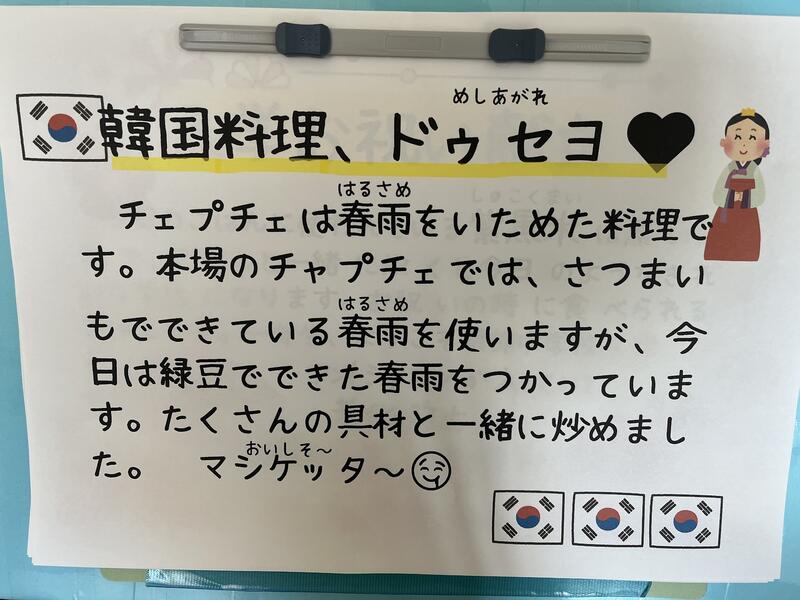 めしあがれ
韓国料理、ドゥセヨ♥
はるさめ
チェプチェは春雨をいためた料理で
す。本場のチャプチェでは、さつまい
はるさめ
もでできている春雨を使いますが、今
日は緑豆でできた春雨をつかっていま
す。たくさんの具材と一緒に炒めまし
おいしそ~
た。 マシケッタ~